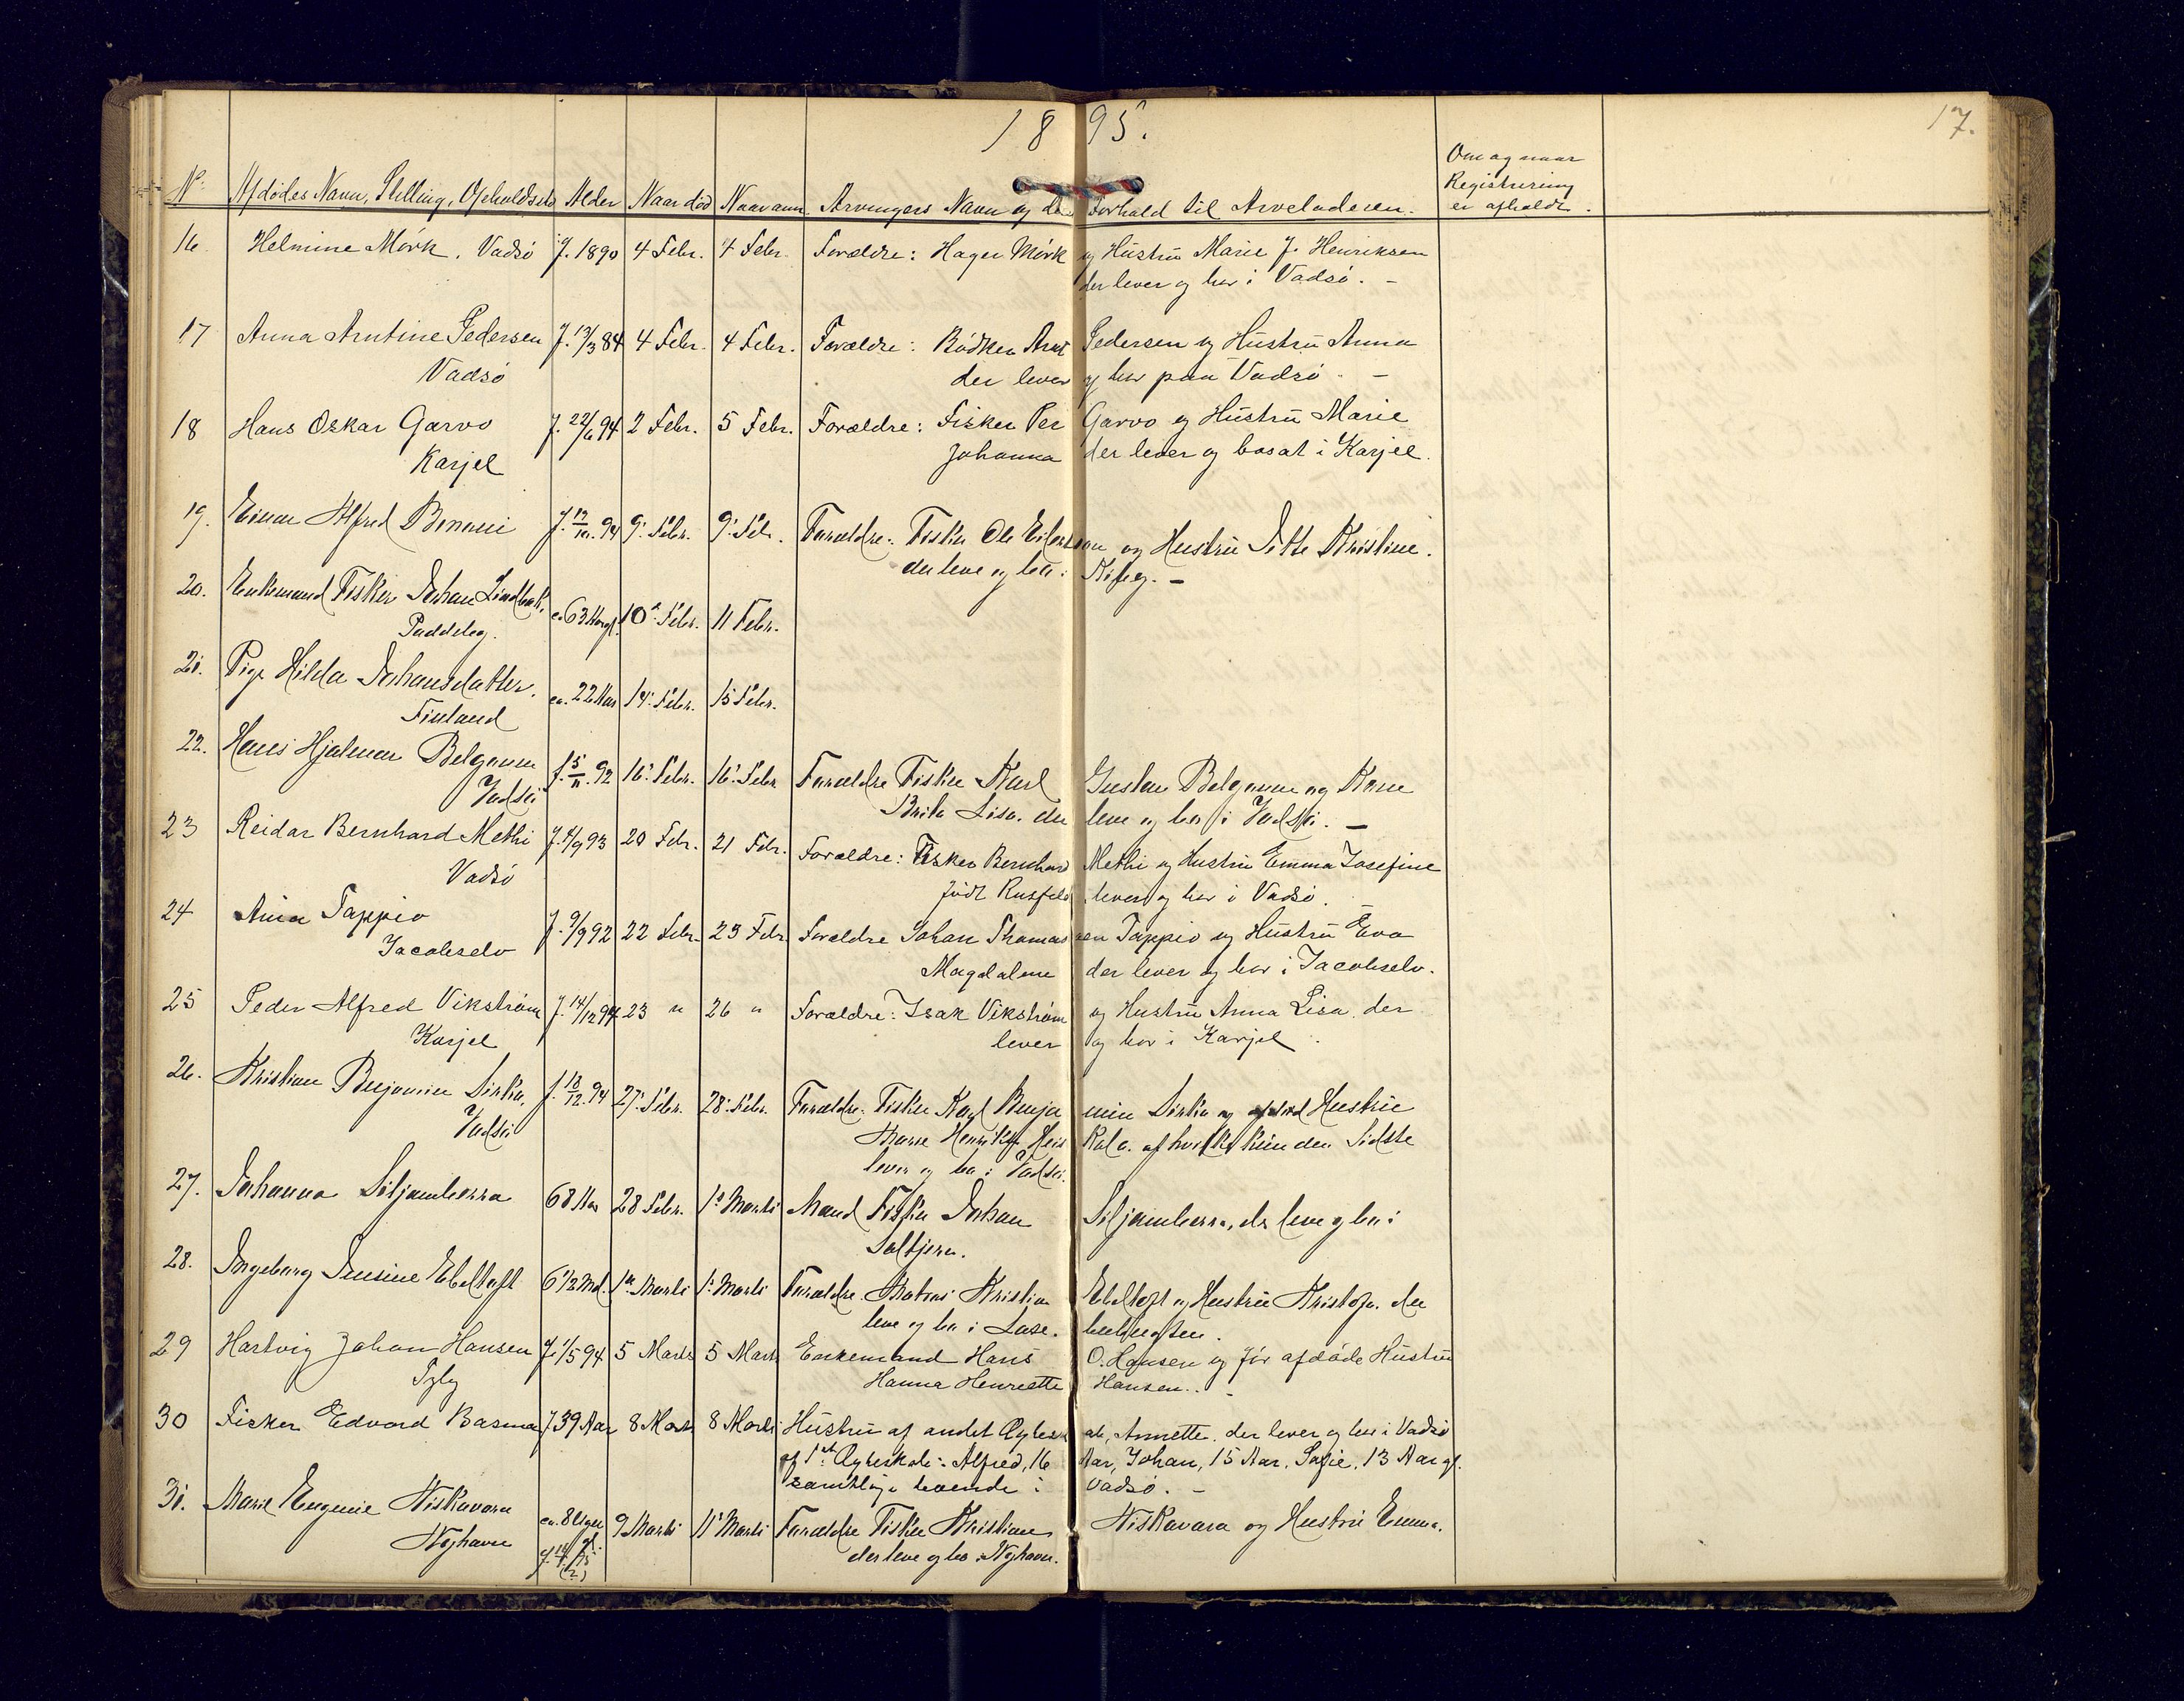 1895.
17.
Nº Afdødes Navn, Stilling, Opholdssted Alder Naar død Naar anm. Arvingers Navn og deres Forhold til Arveladeren. Om og naar
Registrering
er afholdt.
16 Helmine Mörk. Vadsö f. 1890 4 Febr. 4 Febr. Forældre: Hagen Mörk og Hustru Marie J. Henriksen
der lever og bor i Vadsö. -
17 Anna Arntine Pedersen f. 13/3 84 4 Febr. 4 Febr. Forældre: Bödker Arnt Pedersen og Hustru Anna
Vadsö der lever og bor paa Vadsö. -
18 Hans Oskar Garvo f. 22/6 94 2 Febr. 5 Febr. Forældre: Fisker Per Garvo og Hustru Marie
Karjel Johanna der lever og bosat i Karjel.
19. Einar Alfred f. 12/10. 94 9. Febr. 9. Feb. Forældre: Fisker Ole og Hustru Kristine.
der leve og bo i Kiby. -
20. Enkemand Fisker Johan Lindbak, ca 63 Aar gl. 10. Febr. 11 Febr.
Paddeby.
21. Pige Hilda Johansdatter. ca. 22 Aar 14. Febr. 15 Febr.
Finland
22. Hans Hjalmar f. 5/11. 92 16. Febr. 16. Febr. Forældre Fisker Karl Gustav og Kone
Vadsö Brita Lisa. der leve og bo i Vadsö. -
23 Reidar Bernhard Methi f. 4/9 93 20 Febr. 21 Febr. Forældre: Fisker Bernhard Methi og Hustru Emma Josefine
Vadsö født Rusfeld lever og bor i Vadsö.
24 Aina Tappio f. 9/9 92 22 Febr. 23 Febr. Forældre Johan Thomassen Tappio og Hustru Eva
Jacobselv Magdalene der lever og bor i Jacobselv.
25 Peder Alfred Vikström f. 14/12 94 23 " 26 " Forældre: Isak Vikström og Hustru Anna Lisa. der
Karjel lever og bor i Karjel.
26. Kristian Benjamin Sirka. f. 18/12. 94 27. Febr. 28. Febr. Forældre: Fisker Karl Benjamin Sirka og afdød Hustru
Vadsö Henrikke af hvilke kun den Sidste
lever og bor i Vadsö.
27. Johanna Siljamberra 68 Aar 28 Febr. 1. Marts Mand Fisker Johan Siljamberra, der leve og bo i
Saltjern.
28. Ingeborg Jensine Ebeltoft 6 1/2 Md. 1. Marts 1. Marts Forældre. Kristian Ebeltoft og Hustru der
leve og bo i
29 Hartvig Johan Hansen f. 1/5 94 5 Marts 5 Marts Enkemand Hans O. Hansen og før afdøde Hustru
Hanna Henriette Hansen. -
30 Fisker Edvard Basma f. 39 Aar 8 Marts 8 Marts Hustru af andet Ægteskab, Annette. der lever og bor i Vadsö
af 1st Ægteskab: Alfred, 16 Aar, Johan, 15 Aar, Sofie, 13 Aar gl.
samtlige boende i Vadsö. -
31. Marie Eugenie Niskavara ca. 8 Uger gl. 9 Marts 11. Marts Forældre Fisker Kristian Niskavara og Hustru Emma.
Nyhavn der leve og bo i Nyhavn.